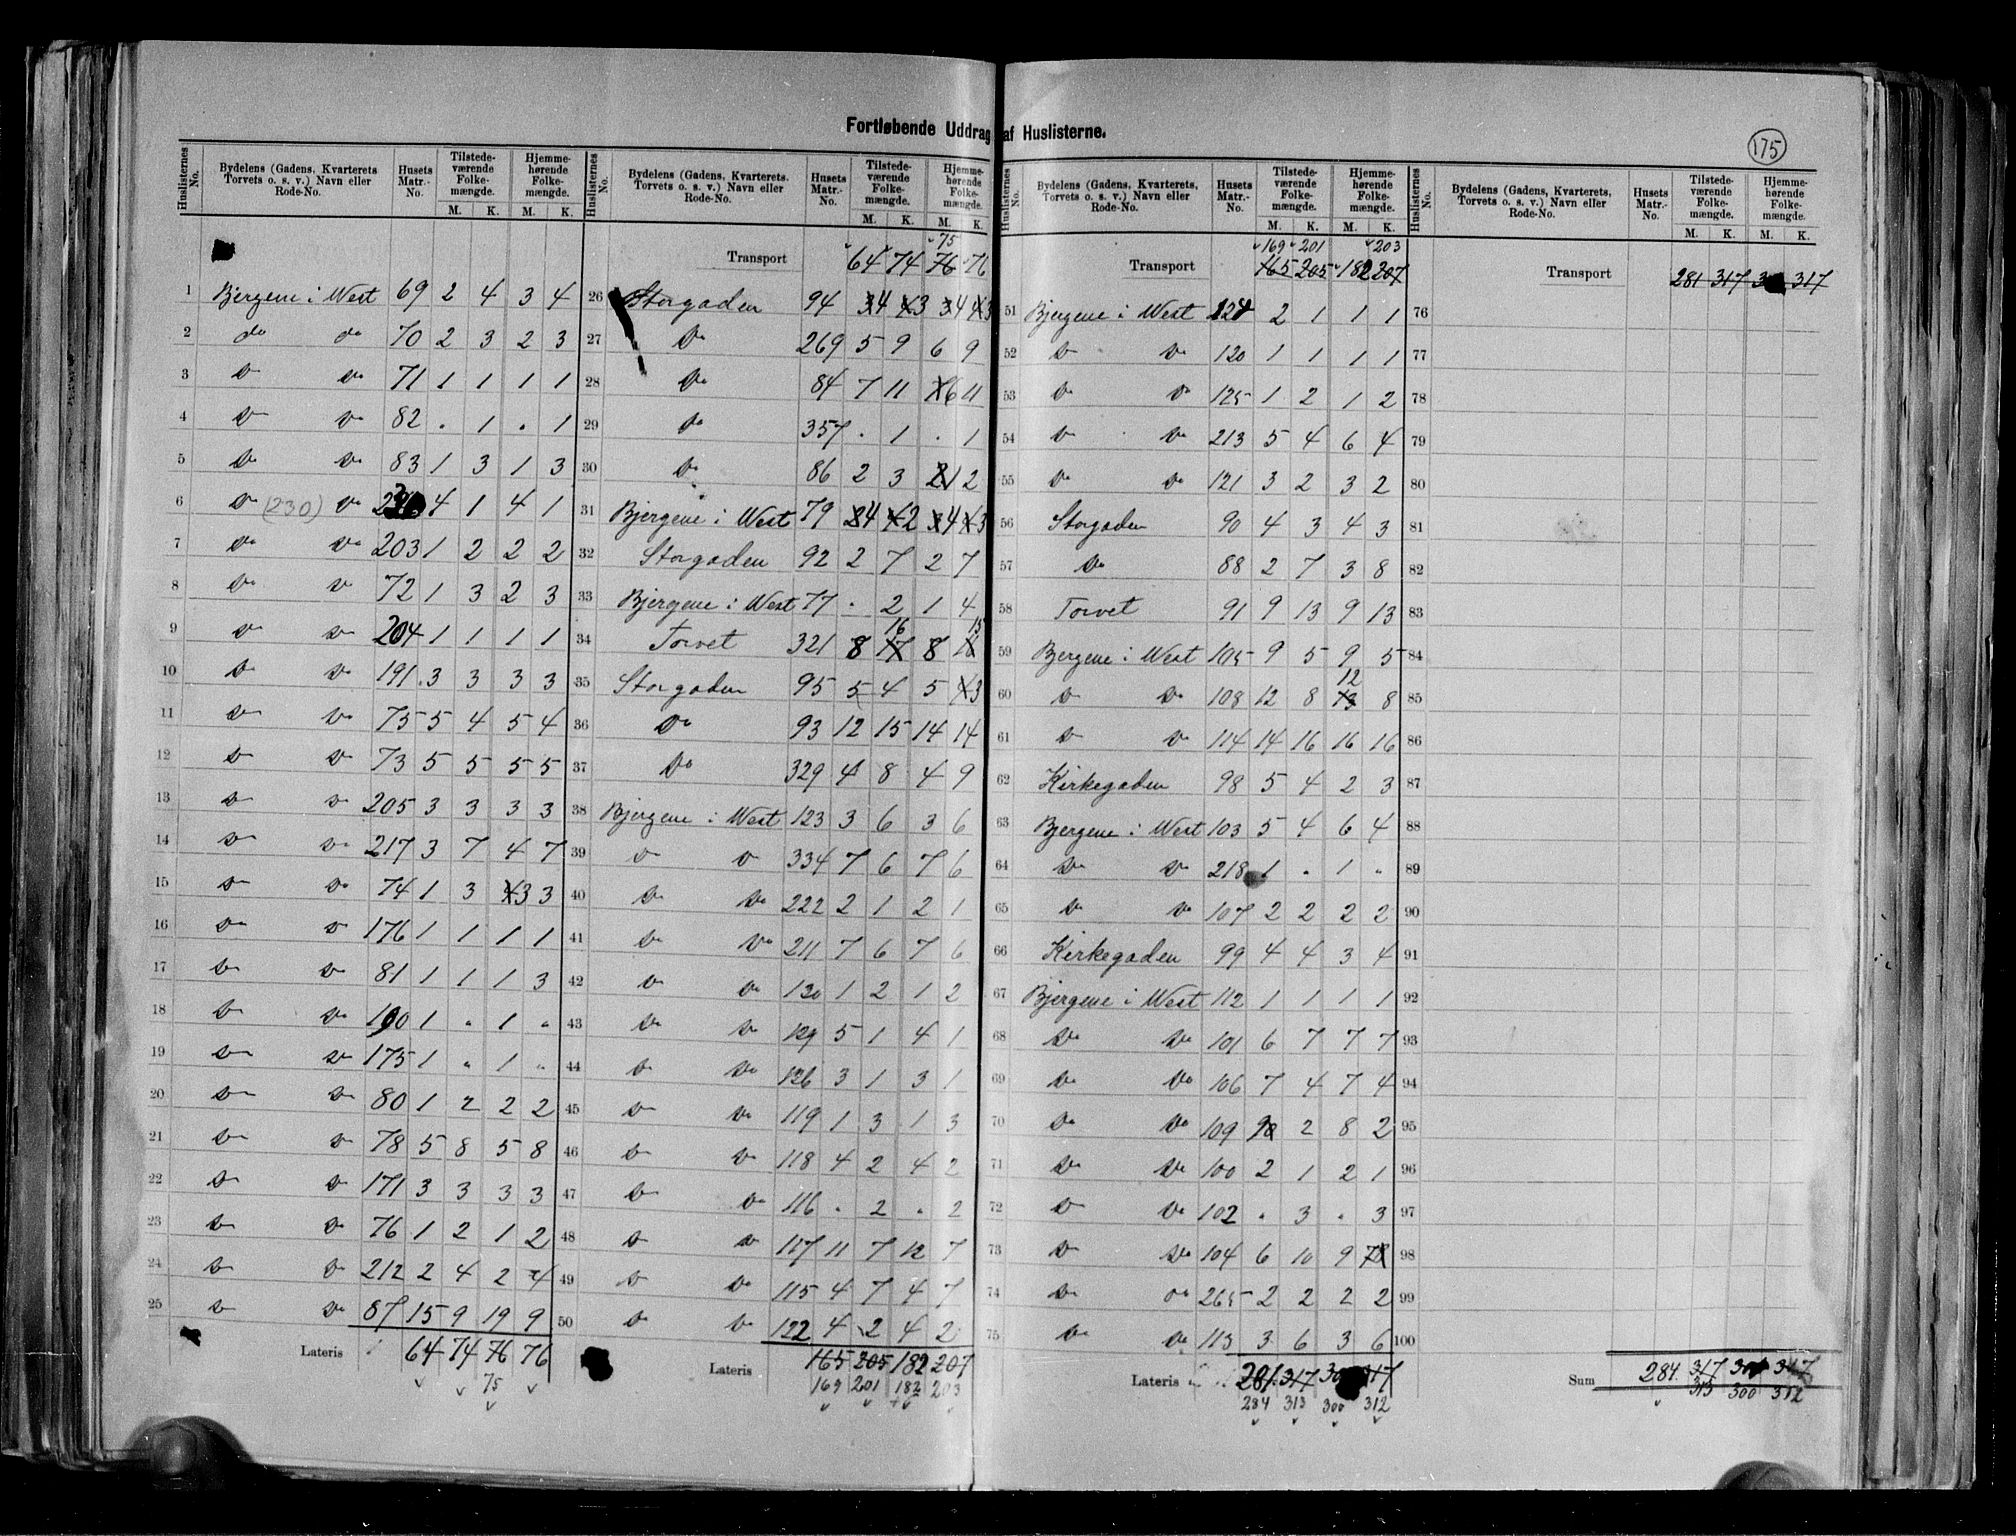 Fortløbende Uddrag af Huslisterne.
175
Huslisternes No. Bydelens (Gadens, Kvarterets Torvets o. s. v.) Navn eller Rode-No. Husets Matr.-No. Tilstede-værende Folke-mængde. Hjemme-hørende Folke-mængde.
M. K. M. K.
1 Bjergene i West 69 2 4 3 4
2 do do 70 2 3 2 3
3 Do Do 71 1 1 1 1
4 Do Do 82 . 1 . 1
5 Do Do 83 1 3 1 3
6 Do (230) Do 4 1 4 1
7 Do Do 203 1 2 2 2
8 Do Do 72 1 3 2 3
9 Do Do 204 1 1 1 1
10 Do Do 191 3 3 3 3
11 Do Do 75 5 4 5 4
12 Do Do 73 5 5 5 5
13 Do Do 205 3 3 3 3
14 Do Do 217 3 7 4 7
15 Do Do 74 1 3 3 3
16 Do Do 176 1 1 1 1
17 Do Do 81 1 1 1 3
18 Do Do 190 1 " 1 "
19 Do Do 175 1 " 1 "
20 Do Do 80 1 2 2 2
21 Do Do 78 5 8 5 8
22 Do Do 171 3 3 3 3
23 Do Do 76 1 2 1 2
24 Do Do 212 2 4 2 4
25 Do Do 87 15 9 19 9
Lateris 64 74 76 76
75
Huslisternes No. Bydelens (Gadens, Kvarterets. Torvets o. s. v.) Navn eller Rode-No. Husets Matr.-No. Tilstede-værende Folke-mængde. Hjemme-hørende Folke-mængde.
M. K. M. K.
75
Transport 64 74 76 76
26 Storgaden 94 3 4 4 3 3 4 4 3
27 Do 269 5 9 6 9
28 Do 84 7 11 7 6 11
29 Do 357 . 1 . 1
30 Do 86 2 3 2 1 2
31 Bjergene i West 79 3 4 4 2 3 4 4 3
32 Storgaden 92 2 7 2 7
33 Bjergene i West 77 . 2 1 4
16 15
34 Torvet 321 8 17 8 16
35 Storgaden 95 5 4 5 4 3
36 Do 93 12 15 14 14
37 Do 329 4 8 4 9
38 Bjergene i West 123 3 6 3 6
39 Do Do 334 7 6 7 6
40 Do Do 222 2 1 2 1
41 Do Do 211 7 6 7 6
42 Do Do 130 1 2 1 2
43 Do Do 129 5 1 4 1
44 Do Do 126 3 1 3 1
45 Do Do 119 1 3 1 3
46 Do Do 118 4 2 4 2
47 Do Do 116 . 2 " 2
48 Do Do 117 11 7 12 7
49 Do Do 115 4 7 4 7
50 Do Do 122 4 2 4 2
Lateris 165 205 182 207
169 201 182 203
Huslisternes No. Bydelens (Gadens, Kvarterets, Torvets o. s. v.) Navn eller Rode-No. Husets Matr.-No. Tilstede-værende Folke-mængde. Hjemme-hørende Folke-mængde.
M. K. M. K.
169 201 203
Transport 165 205 182 207
51 Bjergene i West 124 2 1 1 1
52 Do Do 120 1 1 1 1
53 Do Do 125 1 2 1 2
54 Do Do 213 5 4 6 4
55 Do Do 121 3 2 3 2
56 Storgaden 90 4 3 4 3
57 Do 88 2 7 3 8
58 Torvet 91 9 13 9 13
59 Bjergene i West 105 9 5 9 5
12
60 Do Do 108 12 8 13 8
61 Do Do 114 14 16 16 16
62 Kirkegaden 98 5 4 2 3
63 Bjergene i West 103 5 4 6 4
64 Do Do 218 1 " 1 "
65 Do Do 107 2 2 2 2
66 Kirkegaden 99 4 4 3 4
67 Bjergene i West 112 1 1 1 1
68 Do Do 101 6 7 7 7
69 Do Do 106 7 4 7 4
70 Do Do 109 2 8 2
71 Do Do 100 2 1 2 1
72 Do Do 102 " 3 " 3
73 Do Do 104 6 10 9
74 Do Do 265 2 2 2 2
75 Do Do 113 3 6 3 6
Lateris 281 317 317
284 313 300 312
Huslisternes No. Bydelens (Gadens, Kvarterets, Torvets o. s. v.) Navn eller Rode-No. Husets Matr.-No. Tilstede-værende Folke-mængde. Hjemme-hørende Folke-mængde.
M. K. M. K.
Transport 281 317 317
76
77
78
79
80
81
82
83
84
85
86
87
88
89
90
91
92
93
94
95
96
97
98
99
100
Sum 284 317 317
313 300 312